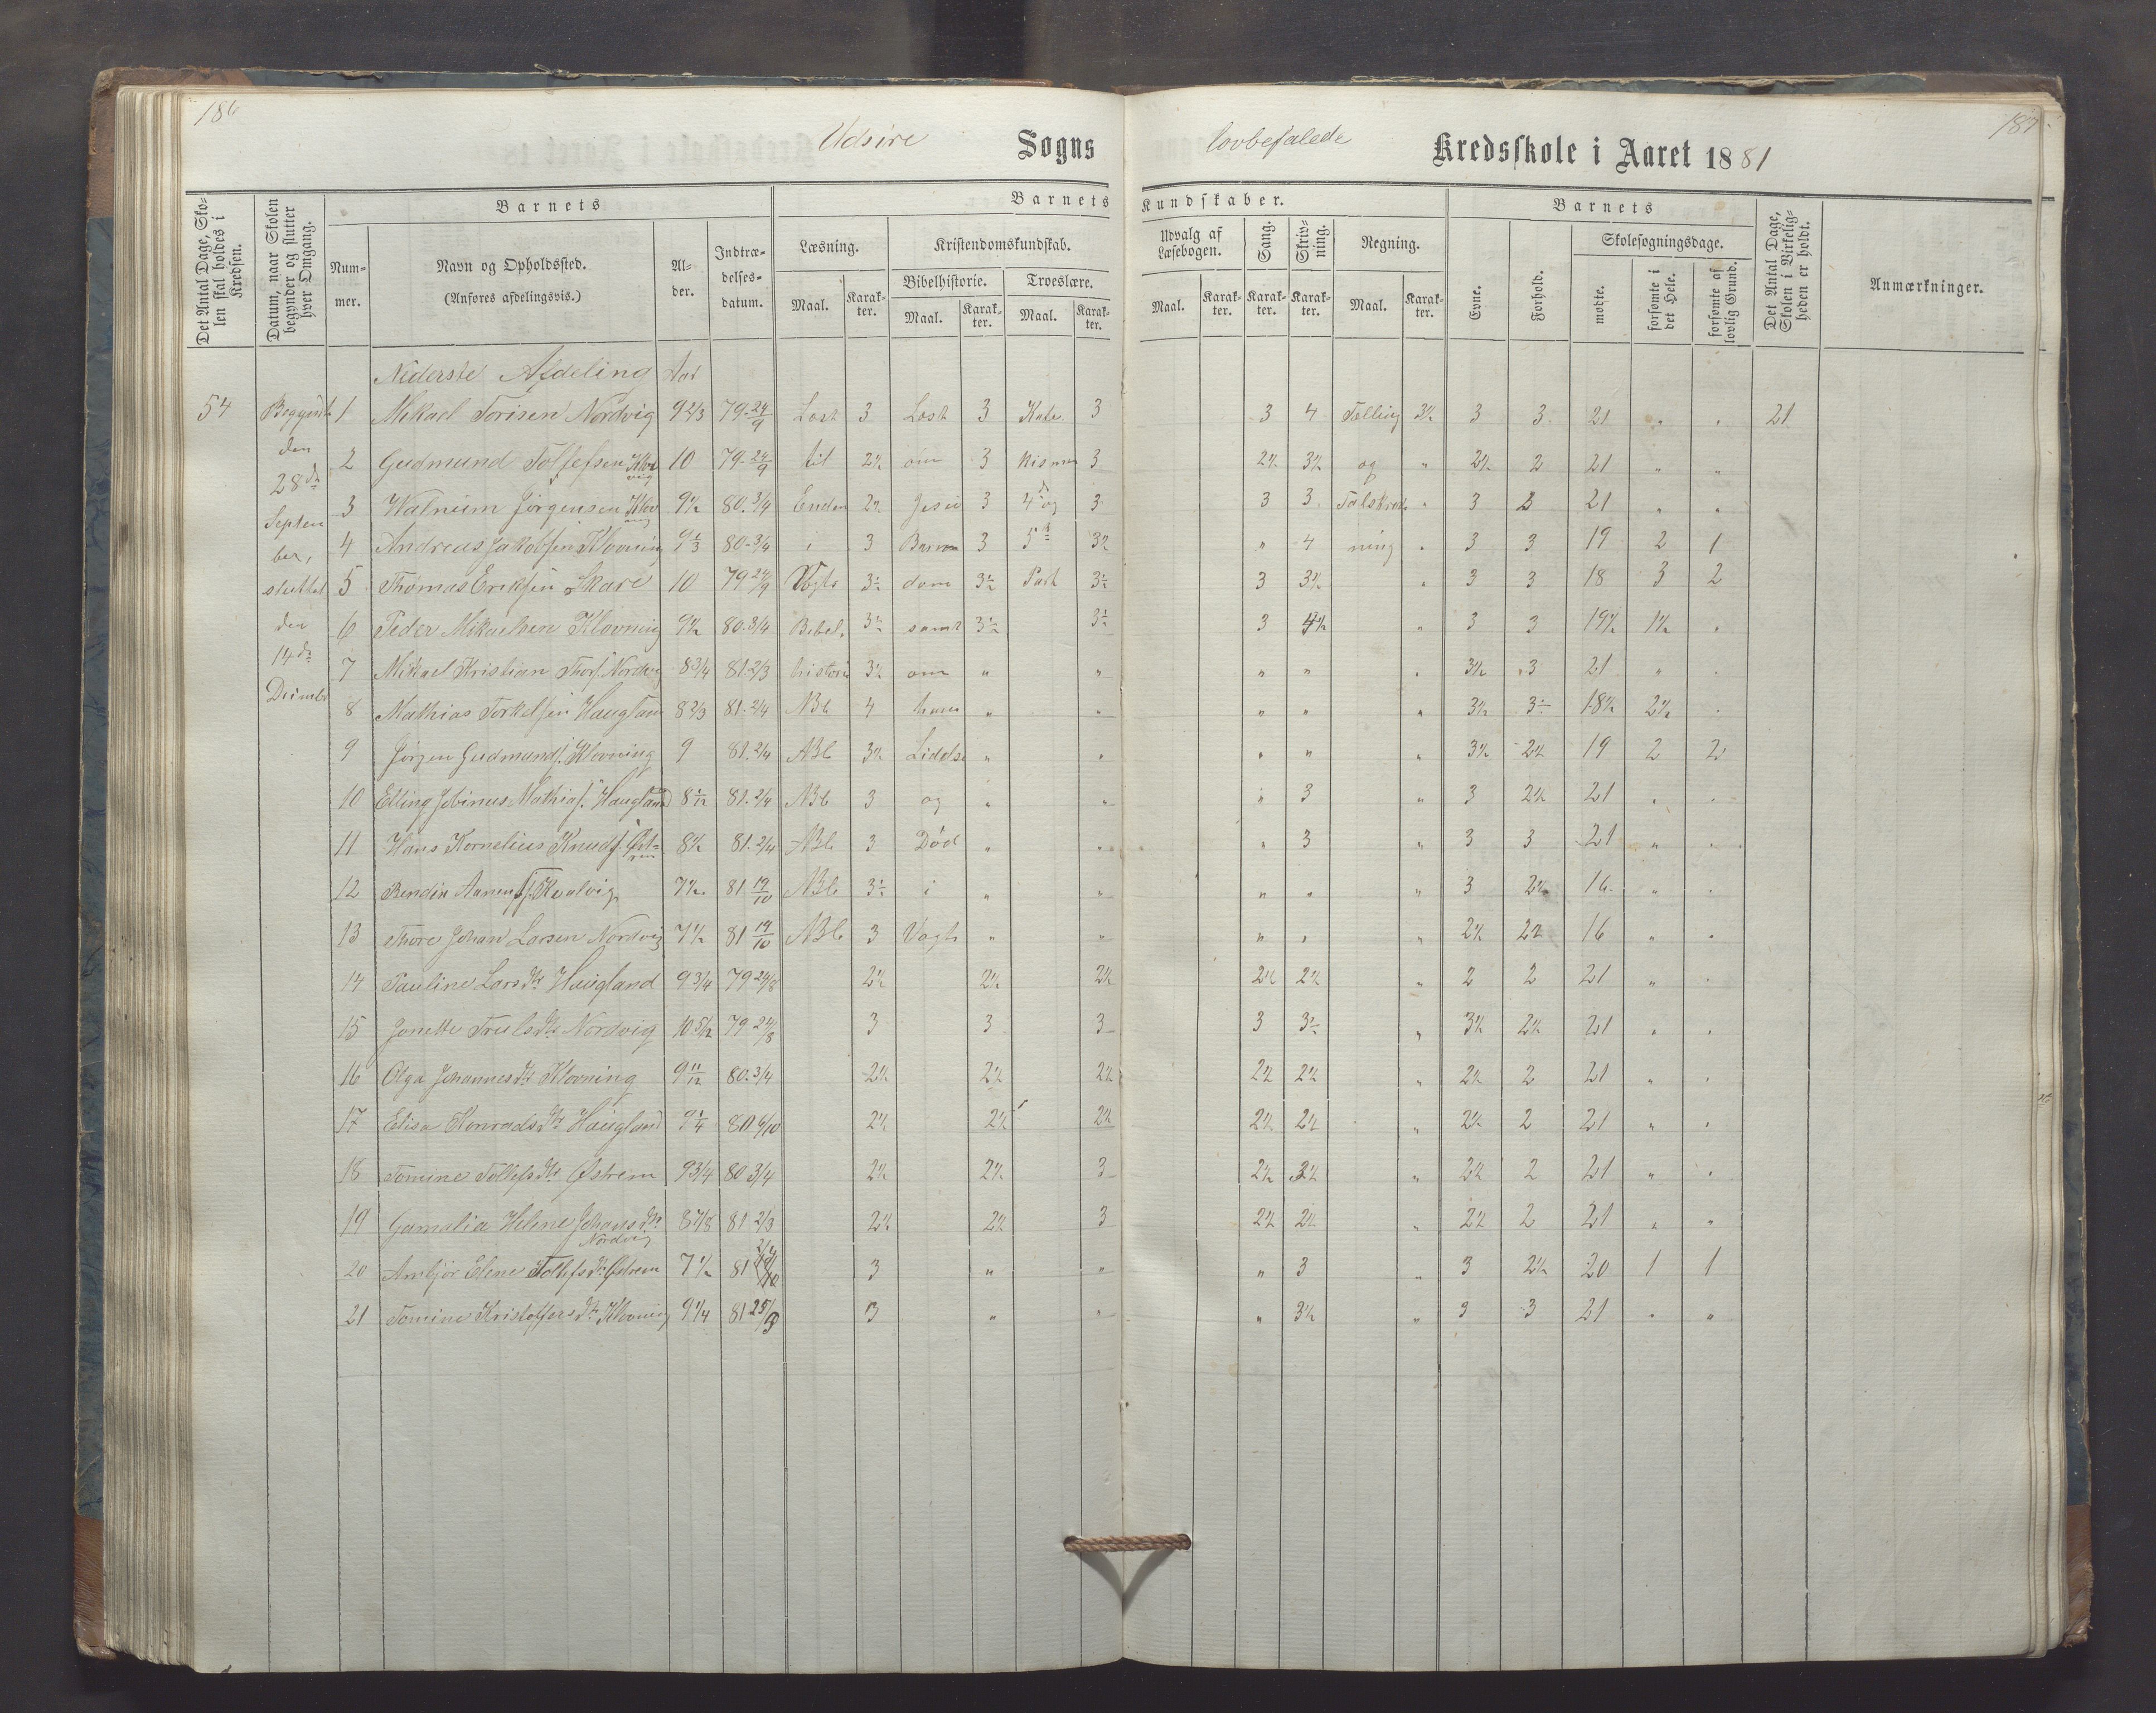 186
187
Udsire Sogns lovbefalede Kredsskole i Aaret 1881
Det Antal Dage, Skolen skal holdes i Kredsen.
Datum, naar Skolen begynder og slutter hver Omgang.
Barnets
Nummer.
Navn og Opholdssted.
(Anføres afdelingsvis.)
Alder.
Indtrædelsesdatum.
Barnets Kundskaber.
Læsning.
Maal. Karakter.
Kristendomskundskab.
Bibelhistorie.
Maal. Karakter.
Troeslære.
Maal. Karakter.
Udvalg af Læsebogen.
Maal. Karakter.
Sang.
Karakter.
Skrivning.
Karakter.
Regning.
Maal. Karakter.
Barnets
Evne.
Forhold.
Skolesøgningsdage.
mødte.
forsømte i det Hele.
forsømte af lovlig Grund.
Det Antal Dage, Skolen i Virkeligheden er holdt.
Anmærkninger.
Nederste Afdeling Aar
54 1 Mikael Torisen Nordvig 9 2/3 79-24/9 Læst 3 Læst 3 Kate 3 3 4 Tælling 3½ 3 3 21 " " 21
den 2 Gudmund Tollefsen 10 79-24/9 til 2½ om 3 kismen 3 2½ 3½ og " 2½ 2 21 " "
28de 3 Jørgensen 9½ 80.3/4 Enden 2½ Jesu 3 4de og 3 3 3 " 3 21 " "
September, 4 Andreas Jakobsen Klovning 9 1/3 80-3/4 i 3 Barn 3 5te 3½ " 4 ning " 3 3 19 2 1
sluttet 5 Thomas Eriksen Skare 10 79 24/9 Vogts 3½ dom 3½ Part 3½ 3 3½ " 3 3 18 3 2
den 6 Peder Mikaelsen Klovning 9½ 80.3/4 Bibel 3½ samt 3½ 3½ 3 4½ " 3 3 19½ 1½ "
14de 7 Mikael Kristian Nordvig 8 3/4 81.2/3 historie 3½ om " " " " " 3½ 3 21 " "
8 Mathias Torkelsen Haugland 8 2/3 81.2/4 ABC 4 hans " " " " " 3½ 3½ 18½ 2½ "
9 Jørgen Gudmunds. Klovning 9 81.2/4 ABC 3½ Lidelse " " " " " 3½ 2½ 19 2 2
10 Elling Mathias. Haugland 81.2/4 ABC 3 og " " " 3 " 3 2½ 21 " "
11 Hans Kornelius Knuds. 8½ 81.2/4 ABC 3 Død " " " 3 " 3 3 21 " "
12 7½ 81 19/10 ABC 3½ i " " " " " 3 2½ 16 " "
13 Thore Johan Larsen Nordvig 7½ 81 19/10 ABC 3 Vogts " " " " " 2½ 2½ 16 " "
14 Pauline Larsdtr Haugland 9 3/4 79 24/8 2½ 2½ 2½ 2½ 2½ " 2 2 21 " "
15 Jonette Trulsdtr Nordvig 10 5/12 79 24/8 3 3 3 3 3½ " 3½ 2½ 21 " "
16 Olga Johannesdtr Klovning 9 11/12 80.3/4 2½ 2½ 2½ 2½ 2½ " 2½ 2 21 " "
17 Elisa Konradsdtr Haugland 9 1/4 80 6/10 2½ 2½ 2½ 2½ 2½ " 2½ 2 21 " "
18 Tomine Tollefsdtr Østrem 9 3/4 80 3/4 2½ 2½ 3 2½ 3½ " 2½ 2 21 " "
19 Gamalia Helene Johansdtr Nordvig 8 7/8 81 2/3 2½ 2½ 3 2½ 2½ " 2½ 2 21 " "
20 Anbjør Elene Tollefsdtr Østrem 7½ 81 3 " " " 3 " 3 2½ 20 1 1
21 Tomine Kristoffersdtr Klovning 9 1/4 81 3 " " " 3½ " 3 3 21 " "